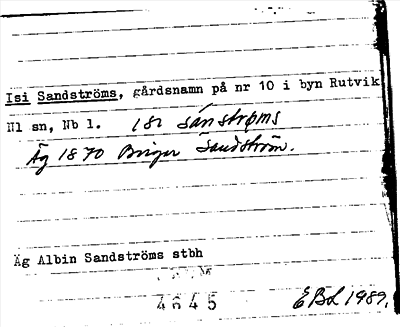 Isi Sandströms, gårdsnamn på nr 10 i byn Rutvik
Nl sn, Nb l. ısı sánströ̀ms
Äg 1870 Birger Sandström.
Äg Albin Sandströms stbh
4645 EBL 1989.